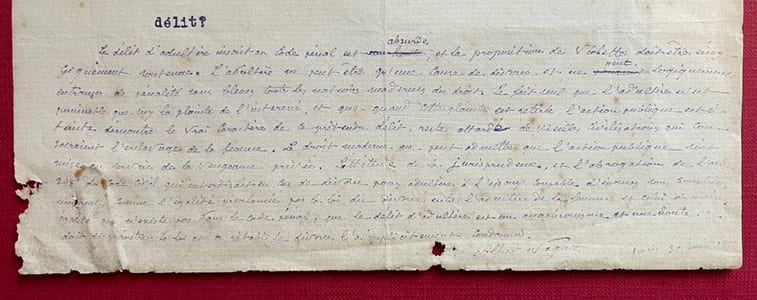 délit?
absurde
Le délit d'adultère inscrit au Code pénal est et la proposition de Viol doit être éner
giquement soutenue. L'adultère ne peut être qu'une cause de divorce et ne peut logiquement
entrainer de pénalité sans blesser toutes les notions modernes du droit. Le fait seul que l'adultère n'est
punissable que sur la plainte de l'intéressé et que quand cette plainte est retirée l'action publique est é
teinte démontre le vrai caractère de ce prétendu délit, reste attardé de vieilles civilisations qui con
sacraient l'esclavage de la femme. Le droit moderne ne peut admettre que l'action publique soit
mise au service de la vengeance privée. de la jurisprudence, et l'abrogation de l'art
298 du code civil qui interdisait en cas de divorce pour adultère à l'époux coupable d'épouser son complice
comme l'égalité proclamée par la loi du divorce entre l'adultère de la femme et celui du mari
égalité que n'existe pas dans le code pénal, que le délit d'adultère est un anachronisme et une
doit disparaître. La loi qui a rétabli le divorce l'a implicitement condamné.
Paris